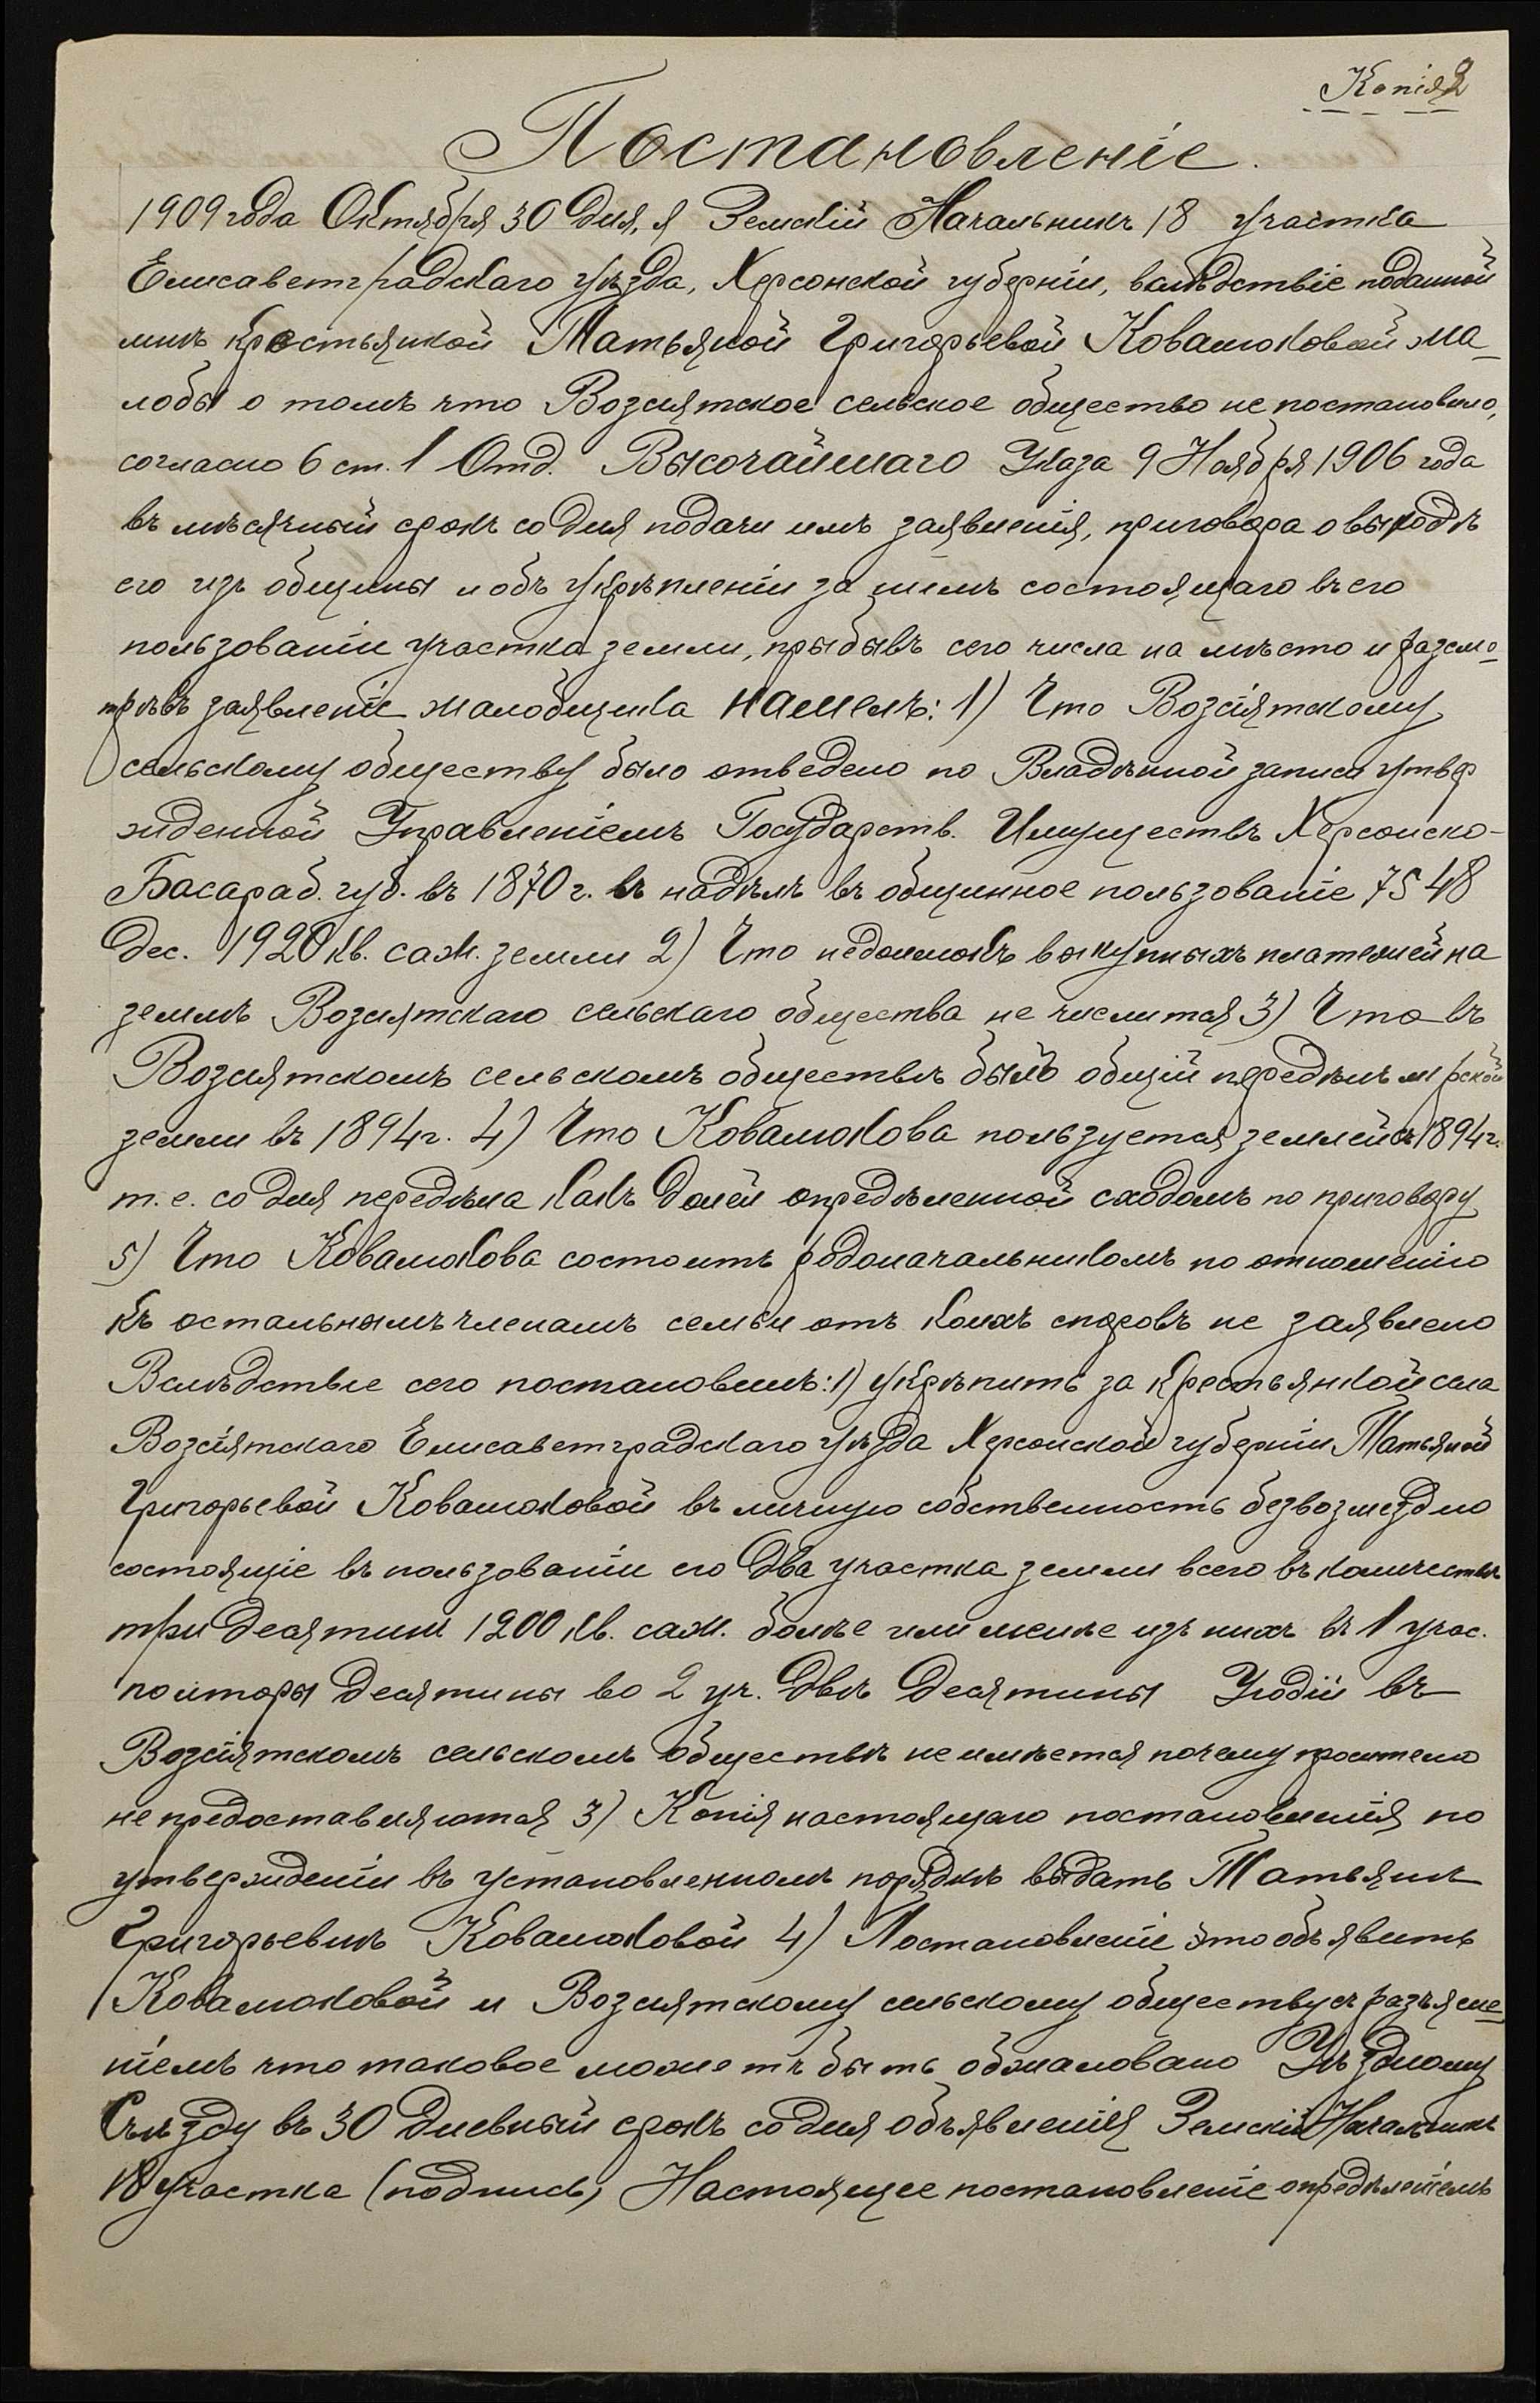 Копія 2
Постановленіе.
1909 года Октября 30 дня, я Земскій Начальникъ 18 участка
Елисаветградскаго уѣзда, Херсонской губерніи, вслѣдствіе поданной
мнѣ крестьянкой Татьяной Григорьевой Ковалюковой жа-
лобы о томъ что Возсіятское сельское общество не постановило,
согласно 6 ст. 1 Отд. Высочайшаго Указа 9 Ноября 1906 года
въ мѣсячный срокъ со дня подачи имъ заявленія, приговора о выходѣ
его изъ общины и объ укрѣпленіи за нимъ состоящаго въ его
пользованіи участка земли, прыбывъ сего числа на мѣсто и разсмо-
трѣвъ заявленіе жалобщика нашелъ: 1) Что Возсіятскому
сельскому обществу было отведено по Владѣнной записи утвер
жденной Управленіемъ Государств. Имуществъ Херсонско-
Басараб. губ. въ 1870 г. въ надѣлъ въ общинное пользованіе 7548
дес. 1920 кв. саж. земли 2) Что недоимокъ выкупныхъ платежей на
землѣ Возсіятскаго сельскаго общества не числится 3) Что въ
Возсіятскомъ сельскомъ обществѣ былъ общій передѣлъ мірской
земли въ 1894 г. 4) Что Ковалюкова пользуется землей съ 1894 г.
т.е. со дня передѣла какъ долей опредѣленной сходомъ по приговору
5) Что Ковалюкова состоитъ родоначальникомъ по отношенію
къ остальнымъ членамъ семьи отъ коихъ споровъ не заявлено
Вслѣдствіе сего постановилъ: 1) укрѣпить за крестьянкой села
Возсіятскаго Елисаветградскаго уѣзда Херсонской губерніи Татьяной
Григорьевой Ковалюковой въ личную собственность безвозмездно
состоящіе въ пользованіи его два участка земли всего въ количествѣ
три десятин 1200 кв. саж. болѣе или менѣе изъ нихъ въ 1 учас.
полторы десятины во 2 уч. двѣ десятины Угодій въ
Возсіятскомъ сельскомъ обществѣ не имѣется почему просителю
не предоставляются 3) Копія настоящаго постановленія по
утвержденіи въ установленномъ порядкѣ выдать Татьянѣ
Григорьевнѣ Ковалюковой 4) Постановленіе это объявить
Ковалюковой и Возсіятскому сельскому обществу съ разъясне-
ніемъ что таковое может ъ быть обжаловано Уѣздному
Съѣзду въ 30 дневный срокъ со дня объявленія Земскій Начальникъ
18 участка (подпись) Настоящее постановленіе опредѣленіемъ